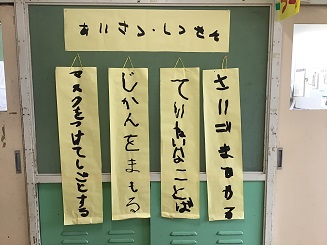 あいさつ・しつせき
さいごまでやる
ていねいなことば
じかんをまもる
マスクをつけてしごとする